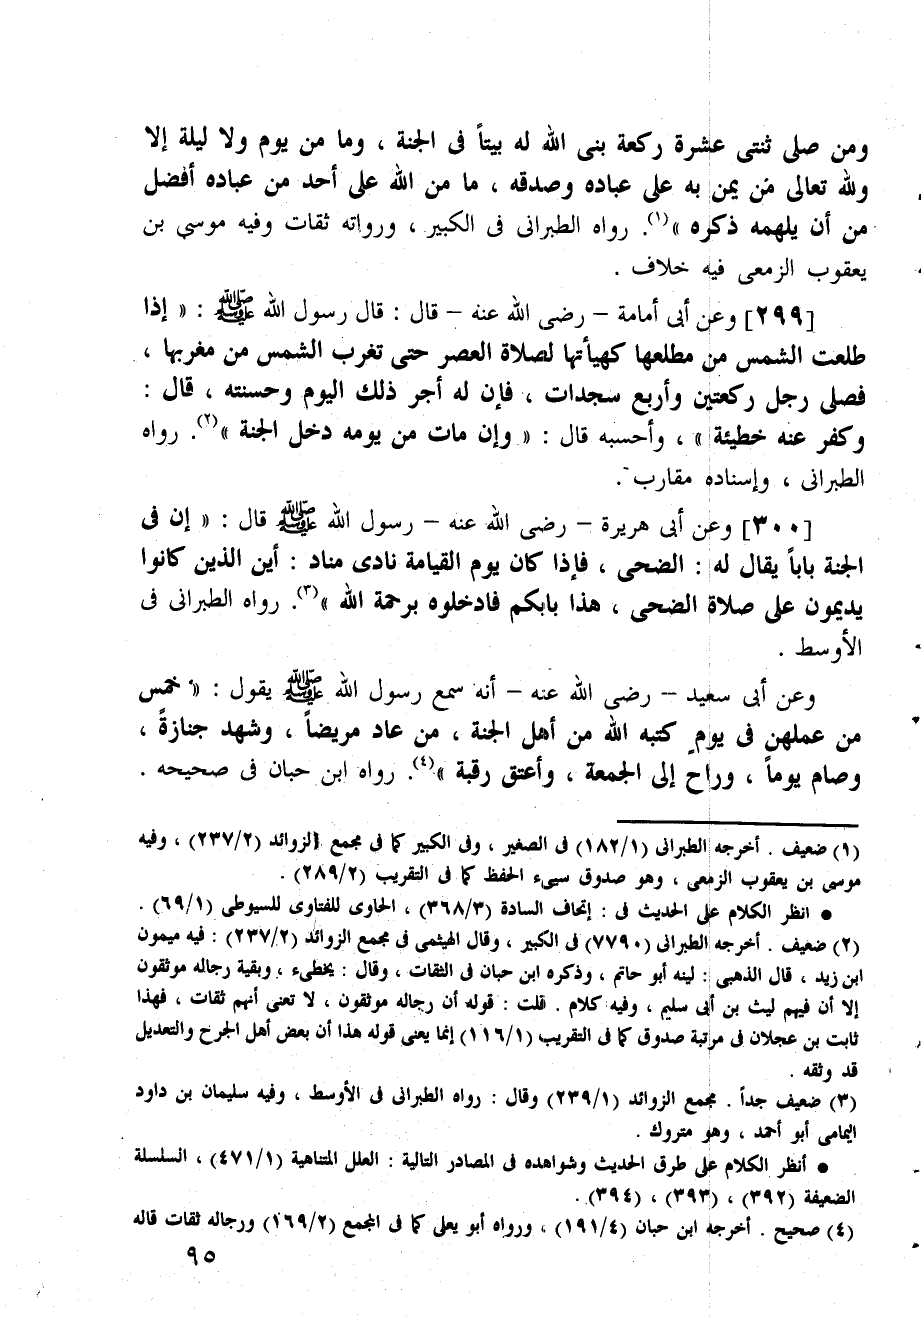 ومن صلى ثنتى عشرة ركعة بنى الله له بيتاً فى الجنة ، وما من يوم ولا ليلة إلا
ولله تعالى مَن يمن به على عباده وصدقه ، ما من الله على أحد من عباده أفضل
من أن يلهمه ذكره »(١). رواه الطبرانى فى الكبير ، ورواته ثقات وفيه موسى بن
يعقوب الزمعى فيه خلاف .
[٢٩٩] وعن أبى أمامة – رضى الله عنه – قال : قال رسول الله ﷺ : « إذا
طلعت الشمس من مطلعها كهيأتها لصلاة العصر حتى تغرب الشمس من مغربها ،
فصلى رجل ركعتين وأربع سجدات ، فإن له أجر ذلك اليوم وحسنته ، قال :
وكفر عنه خطيئة » ، وأحسبه قال : « وإن مات من يومه دخل الجنة »(٢). رواه
الطبرانى ، وإسناده مقارب .
[٣٠٠] وعن أبى هريرة – رضى الله عنه – رسول الله ﷺ قال : « إن فى
الجنة باباً يقال له : الضحى ، فإذا كان يوم القيامة نادى مناد : أين الذين كانوا
يديمون على صلاة الضحى ، هذا بابكم فادخلوه برحمة الله »(٣). رواه الطبرانى فى
الأوسط .
وعن أبى سعيد – رضى الله عنه – أنه سمع رسول الله ﷺ يقول : « خمس
من عملهن فى يومٍ كتبه الله من أهل الجنة ، من عاد مريضاً ، وشهد جنازةً ،
وصام يوماً ، وراح إلى الجمعة ، وأعتق رقبة »(٤). رواه ابن حبان فى صحيحه .
(١) ضعيف . أخرجه الطبرانى (١/‏١٨٢) فى الصغير ، وفى الكبير كما فى مجمع الزوائد (٢/‏٢٣٧) ، وفيه
موسى بن يعقوب الزمعى ، وهو صدوق سيىء الحفظ كما فى التقريب (٢/‏٢٨٩) .
● انظر الكلام على الحديث فى : إتحاف السادة (٣/‏٣٦٨) ، الحاوى للفتاوى للسيوطى (١/‏٦٩) .
(٢) ضعيف . أخرجه الطبرانى (٧٧٩٠) فى الكبير ، وقال الهيثمى فى مجمع الزوائد (٢/‏٢٣٧) : فيه ميمون
ابن زيد ، قال الذهبى : لينه أبو حاتم ، وذكره ابن حبان فى الثقات ، وقال : يخطىء ، وبقية رجاله موثقون
إلا أن فيهم ليث بن أبى سليم ، وفيه كلام . قلت : قوله أن رجاله موثقون ، لا تعنى أنهم ثقات ، فهذا
ثابت بن عجلان فى مرتبة صدوق كما فى التقريب (١/‏١١٦) إنما يعنى قوله هذا أن بعض أهل الجرح والتعديل
قد وثقه .
(٣) ضعيف جداً . مجمع الزوائد (١/‏٢٣٩) وقال : رواه الطبرانى فى الأوسط ، وفيه سليمان بن داود
اليمامى أبو أحمد ، وهو متروك .
● أنظر الكلام على طرق الحديث وشواهده فى المصادر التالية : العلل المتناهية (١/‏٤٧١) ، السلسلة
الضعيفة (٣٩٢) ، (٣٩٣) ، (٣٩٤) .
(٤) صحيح . أخرجه ابن حبان (٤/‏١٩١) ، ورواه أبو يعلى كما فى المجمع (٢/‏١٦٩) ورجاله ثقات قاله
٩٥